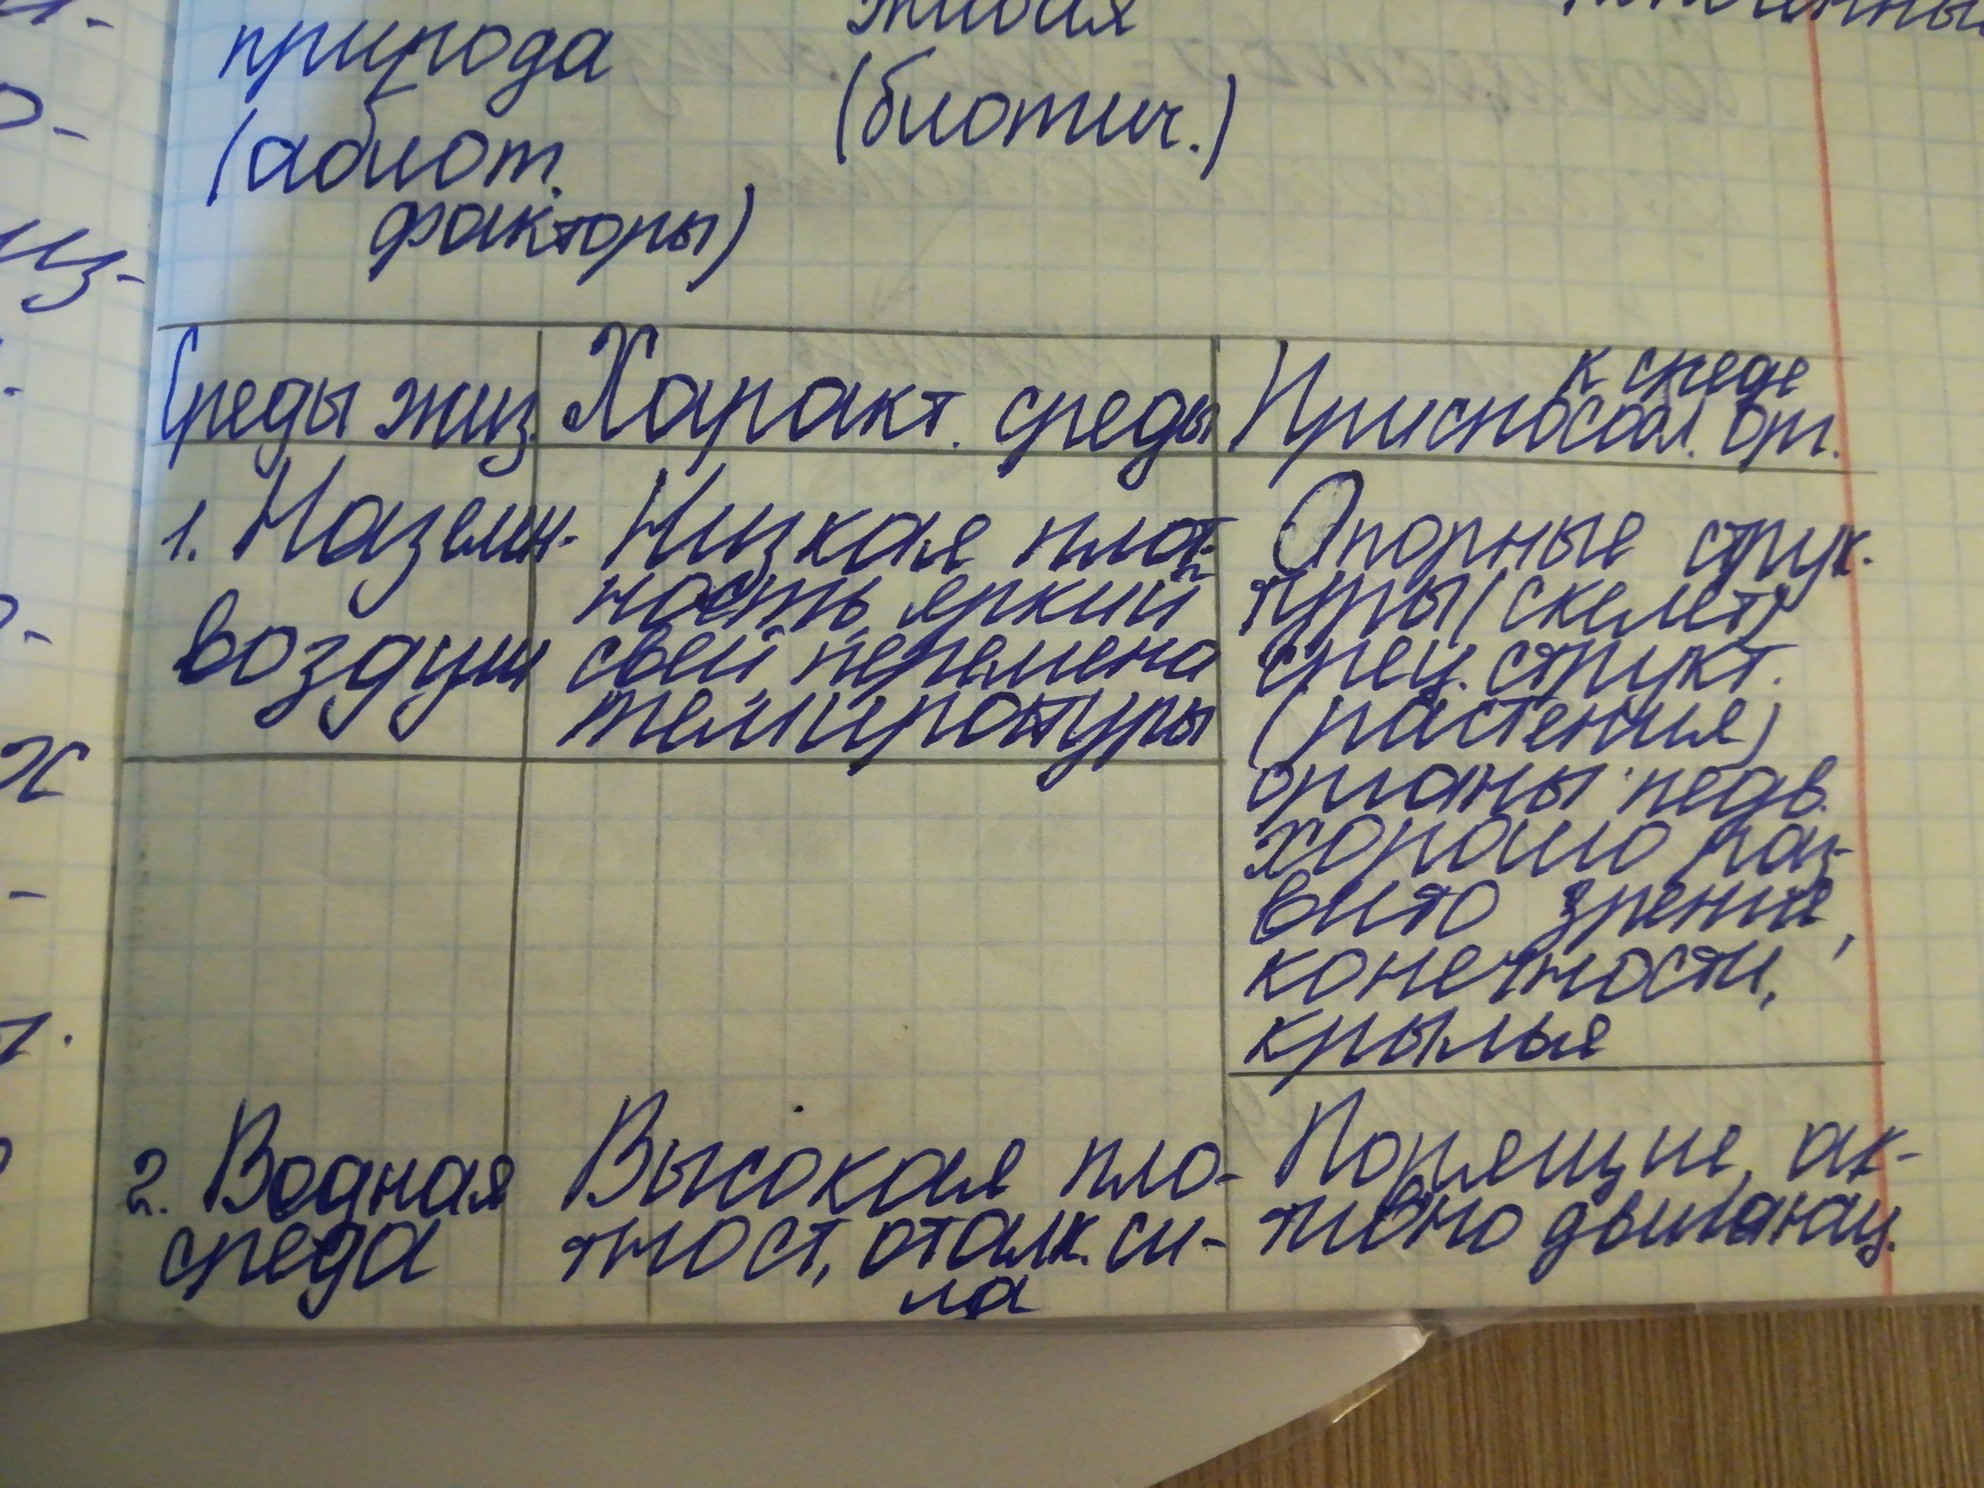 природа
живая
(биотич.)
(абиот.
факторы)
Среды жиз.
Характ. среды
к среде
Приспособл. орг.
1. Наземн-
воздуш
Низкая плот-
ность, яркий
свей перемена
температуры
Опорные струк.
туры (скелет)
спец. структ.
(растения)
органы педв.
хорошо раз-
вито зрение,
конечности,
крылья
2. Водная
среда
Высокая пло-
тност, оталк. си-
ла
Порящие, ак-
тивно двигающ.